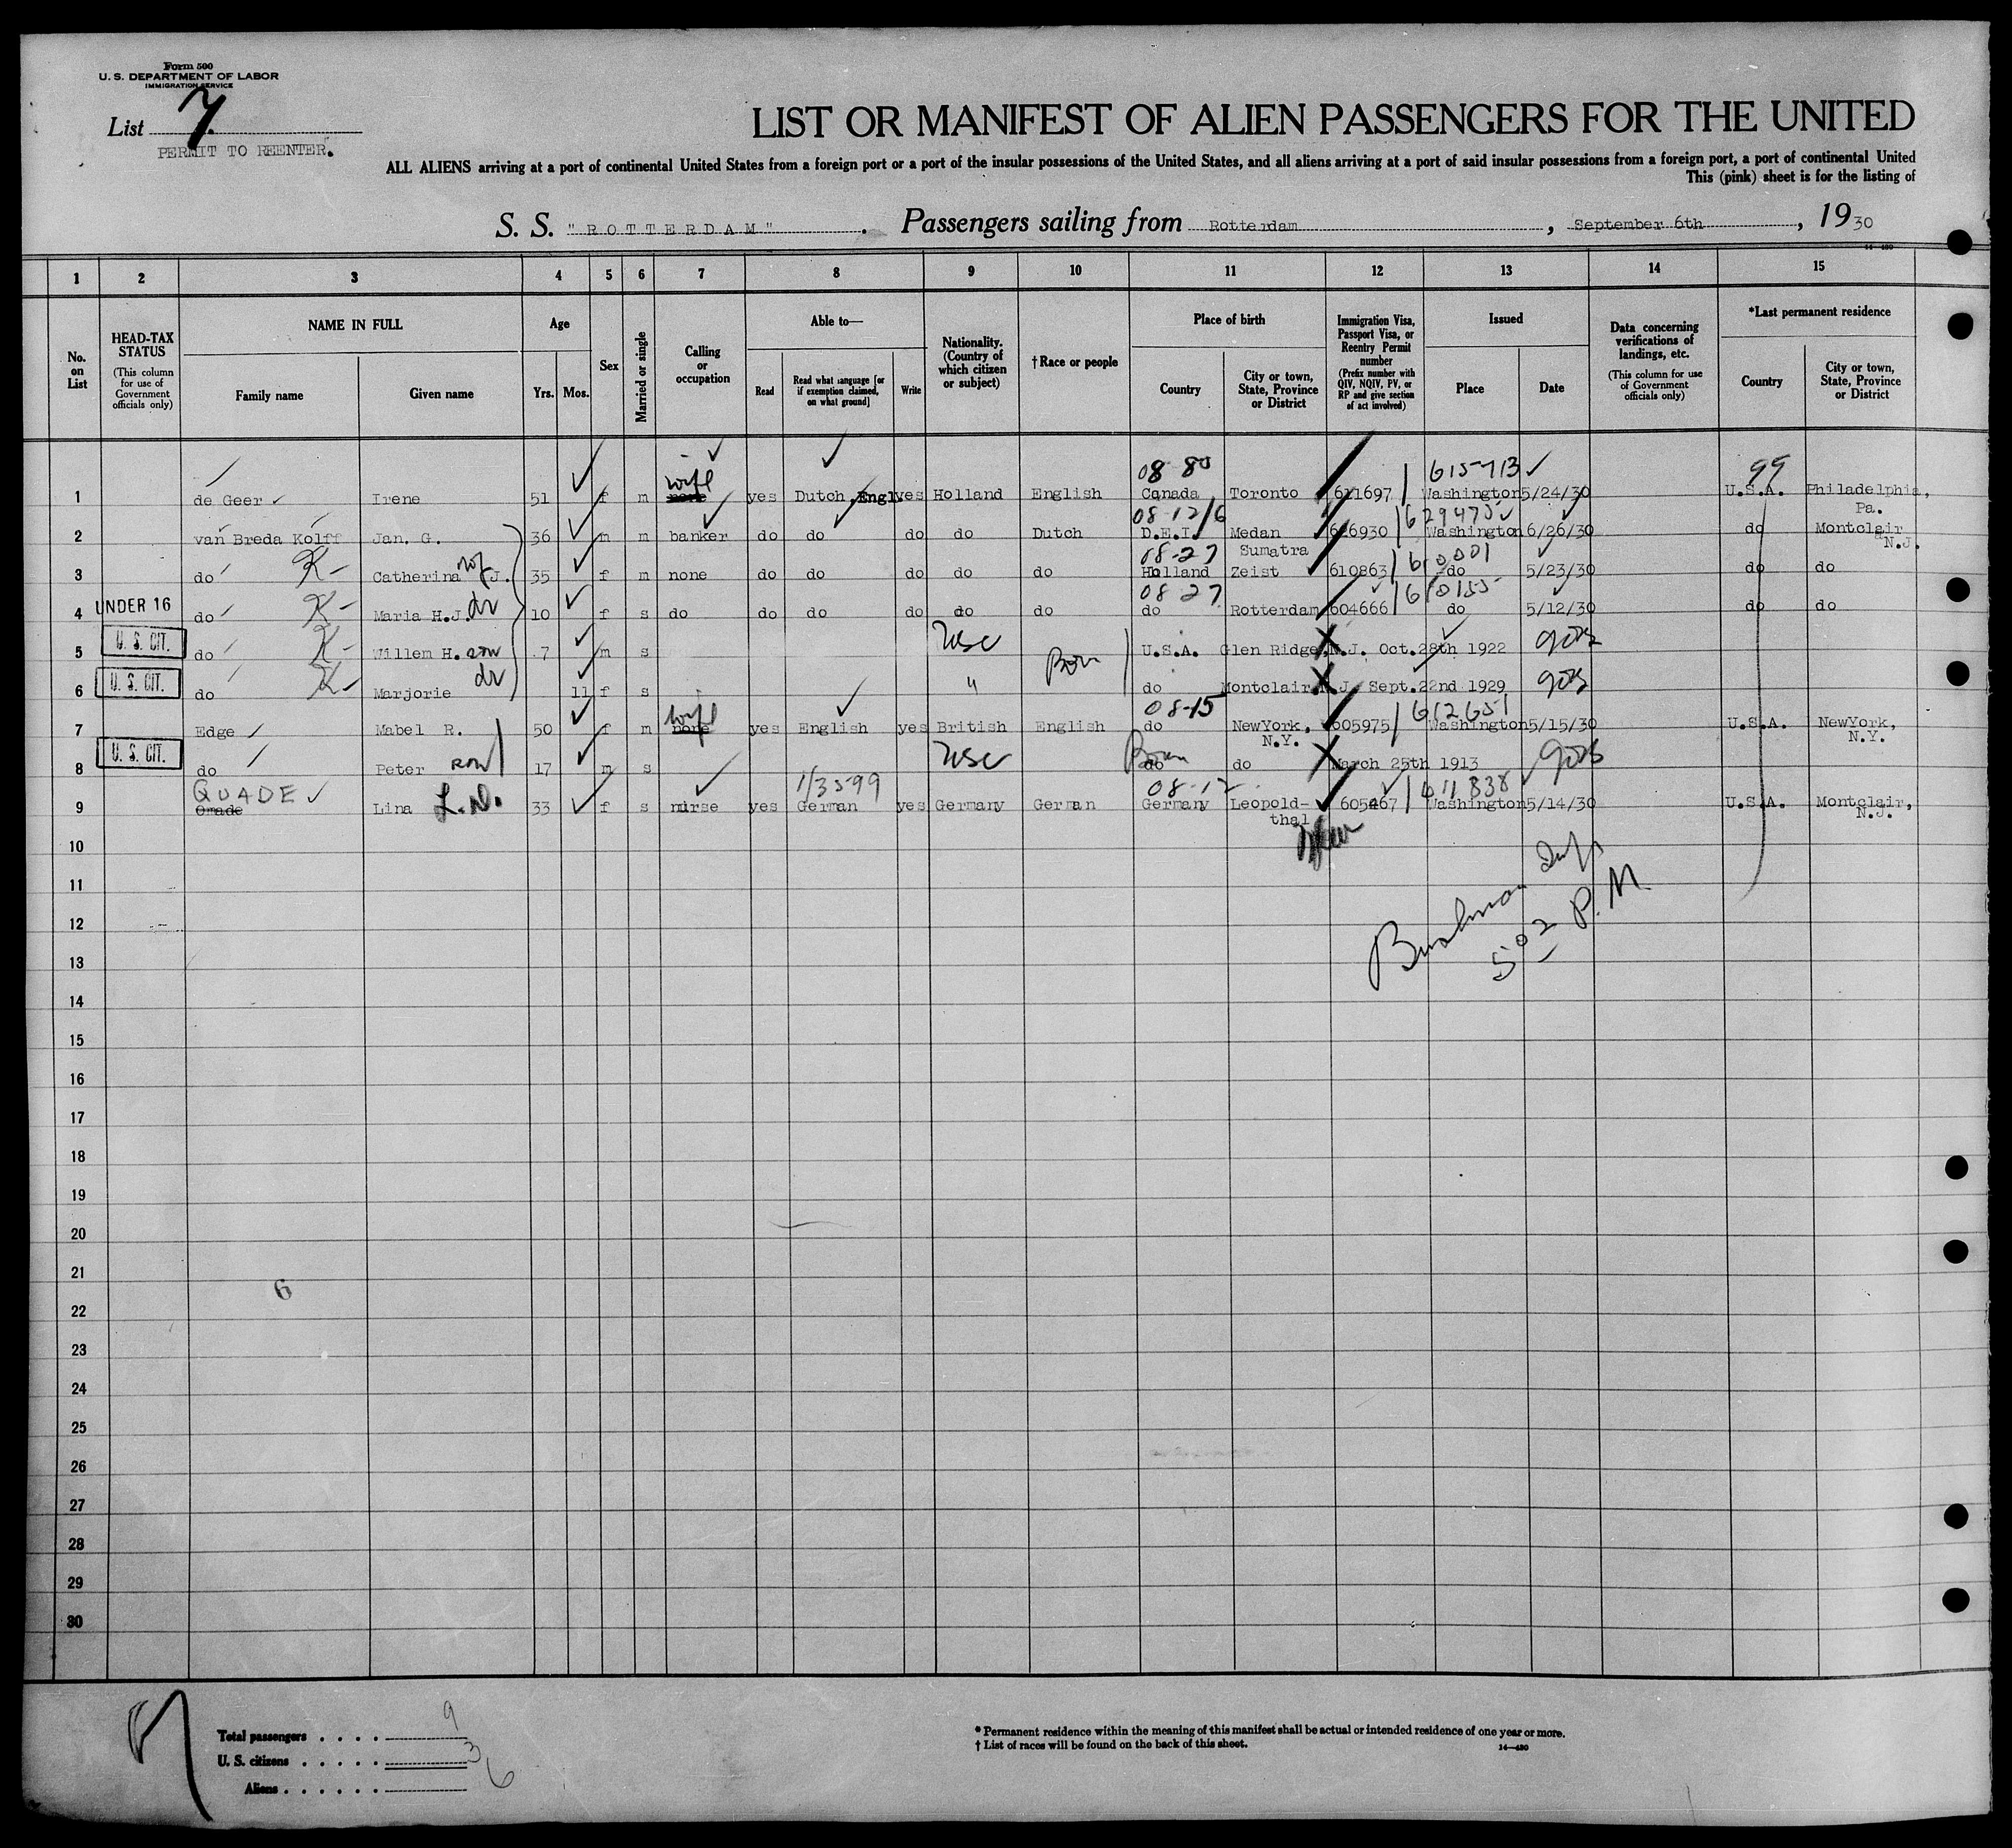 Form 500
U. S. DEPARTMENT OF LABOR
IMMIGRATION SERVICE
List 7
PERMIT TO REENTER.
LIST OR MANIFEST OF ALIEN PASSENGERS FOR THE UNITED
ALL ALIENS arriving at a port of continental United States from a foreign port or a port of the insular possessions of the United States, and all aliens arriving at a port of said insular possessions from a foreign port, a port of continental United
This (pink) sheet is for the listing of
S. S. "ROTTERDAM". Passengers sailing from Rotterdam, September 6th, 1930
14—480
1 2 3 4 5 6 7 8 9 10 11 12 13 14 15
No. on List
HEAD-TAX STATUS
(This column for use of Government officials only)
NAME IN FULL
Family name
Given name
Age
Yrs. Mos.
Sex
Married or single
Calling or occupation
Able to—
Read
Read what language [or if exemption claimed, on what ground]
Write
Nationality. (Country of which citizen or subject)
† Race or people
Place of birth
Country
City or town, State, Province or District
Immigration Visa, Passport Visa, or Reentry Permit number
(Prefix number with QIV, NQIV, PV, or RP and give section of act involved)
Issued
Place
Date
Data concerning verifications of landings, etc.
(This column for use of Government officials only)
*Last permanent residence
Country
City or town, State, Province or District
wife 08 80 615713 99
1 de Geer Irene 51 f m none yes Dutch,Engl. yes Holland English Canada Toronto 611697 Washington 5/24/30 U.S.A. Philadelphia, Pa.
08-12/6 629475
2 van Breda Kolff Jan. G. 36 m m banker do do do do Dutch D.E.I. Medan Sumatra 626930 Washington 6/26/30 do Montclair N.J.
08-27
3 do K- Catherina wf J. 35 f m none do do do do do Holland Zeist 610863 do 5/23/30 do do
08 27 610155
4 UNDER 16 do K- Maria H.J. dr 10 f s do do do do do do do Rotterdam 604666 do 5/12/30 do do
5 U. S. CIT. do K- Willem H. son 7 m s USC Born U.S.A. Glen Ridge, N.J. Oct. 28th 1922
6 U. S. CIT. do K- Marjorie dr 11 f s " do Montclair N.J. Sept. 22nd 1929
wife 08-15 612651
7 Edge Mabel R. 50 f m none yes English yes British English do NewYork, N.Y. 605975 Washington 5/15/30 U.S.A. NewYork, N.Y.
8 U. S. CIT. do Peter son 17 m s USC Born do do March 25th 1913
QUADE 1/3599 08-12 611838
9 Lina L.D. 33 f s nurse yes German yes Germany German Germany Leopoldthal 605467 Washington 5/14/30 U.S.A. Montclair, N.J.
10
11
12
5 02 P.M
13
14
15
16
17
18
19
20
21
6
22
23
24
25
26
27
28
29
30
Total passengers . . . . 9
U. S. citizens . . . . . 3
Aliens . . . . . . 6
* Permanent residence within the meaning of this manifest shall be actual or intended residence of one year or more.
† List of races will be found on the back of this sheet.
14—480